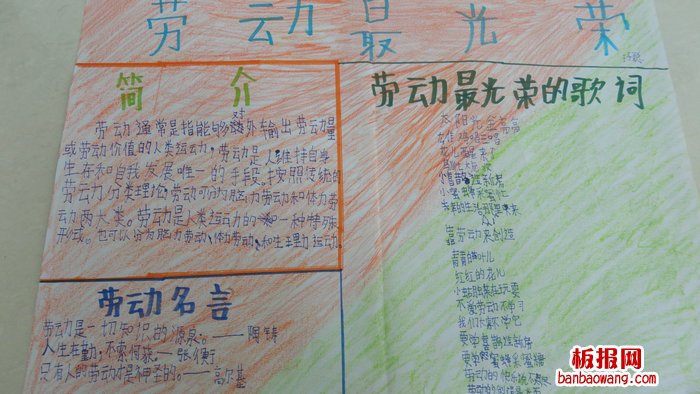 劳动最光荣
简介
劳动通常是指能够对外输出劳动量
或劳动价值的人类运动,劳动是人维持自身
生存和自我发展唯一的手段。按照传统的
劳动分类理论,劳动可分为脑力劳动和体力劳
动两大类。劳动是人类运动的一种特殊
形式。也可以分为脑力劳动、体力劳动、和生理力运动。
劳动名言
劳动是一切知识的源泉。——陶铸
人生在勤,不索何获。——张衡
只有人的劳动才是神圣的。——高尔基
劳动最光荣的歌词
太阳光金亮亮
雄鸡唱三唱
花儿醒来了
小喜鹊造新房
小蜜蜂采蜜忙
幸福的生活哪里来
靠劳动来创造
青青的叶儿
红红的花儿
小蝴蝶贪玩耍
不爱劳动不学习
我们大家不学它
要学喜鹊造新房
要学蜜蜂采蜜糖
劳动的快乐说不尽
劳动的创造最
板报网
banbaowang.com